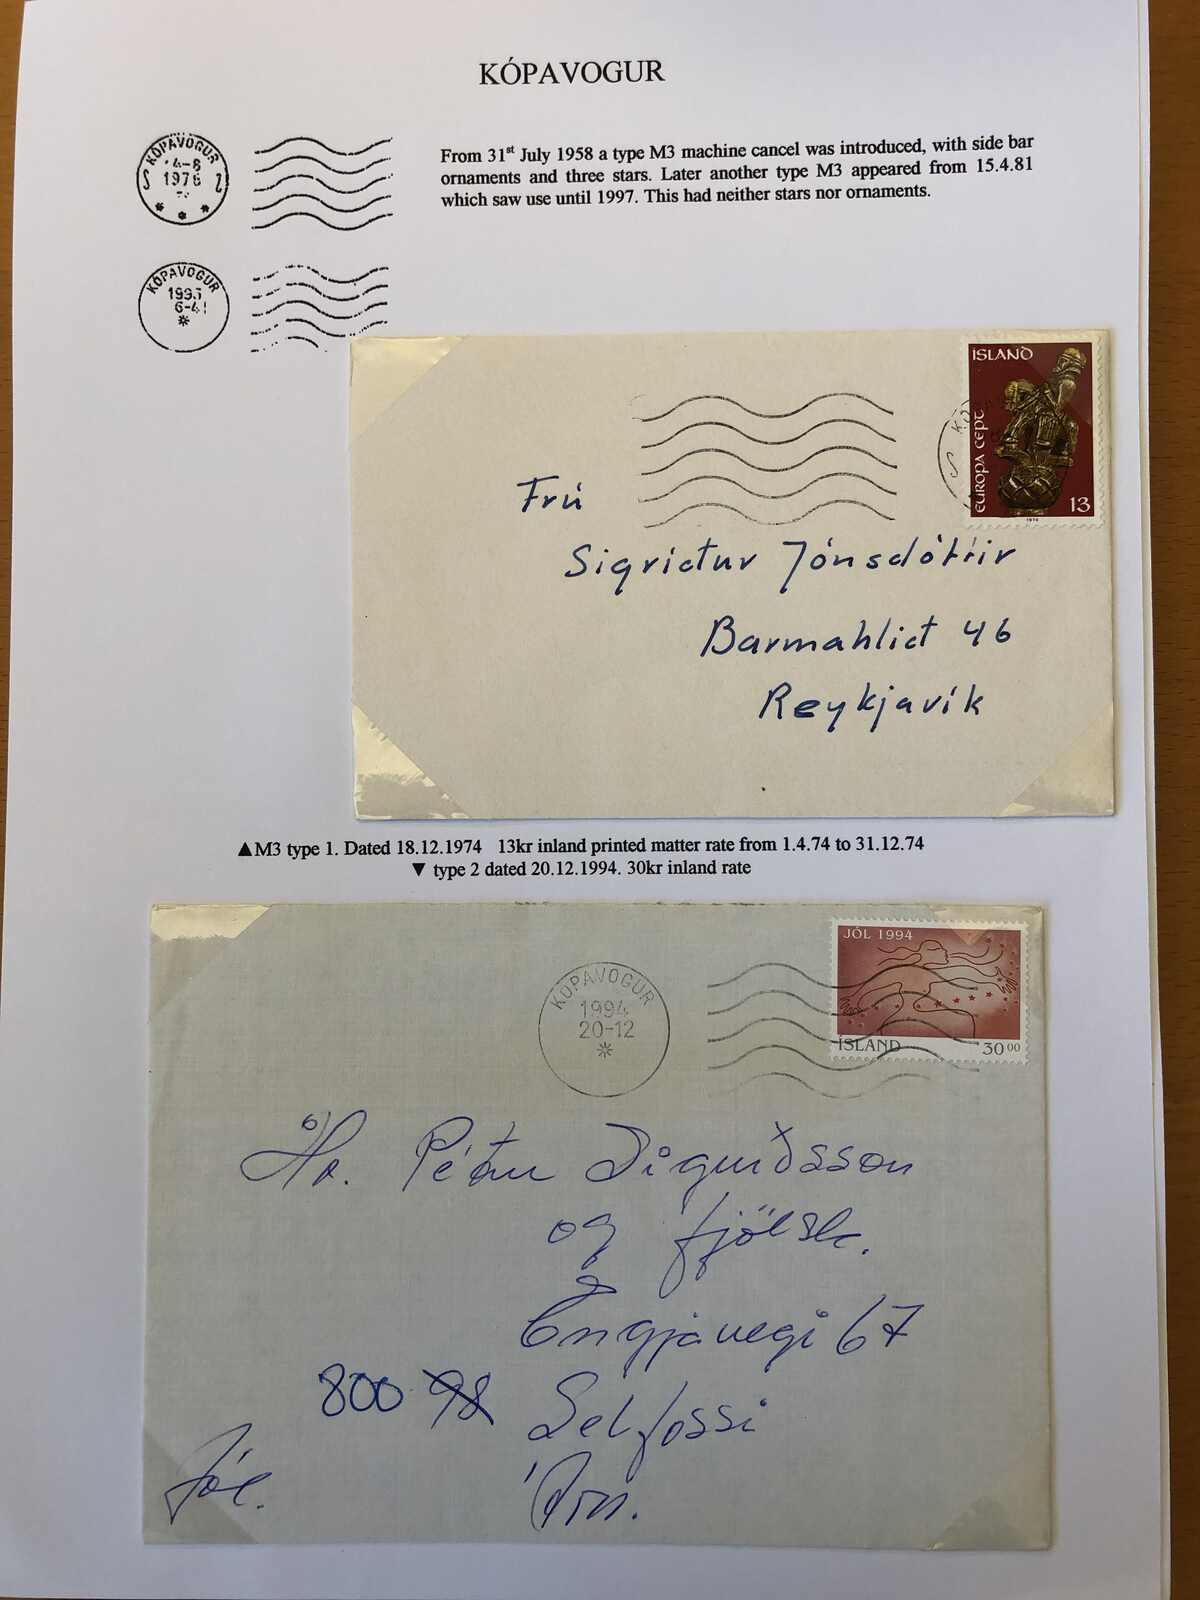 KÓPAVOGUR
KÓPAVOGUR
14-8
1978
From 31st July 1958 a type M3 machine cancel was introduced, with side bar
ornaments and three stars. Later another type M3 appeared from 15.4.81
which saw use until 1997. This had neither stars nor ornaments.
KÓPAVOGUR
1995
6-4
ÍSLAND
EUROPA CEPT
13
1974
KÓ
Frú
Sigríđur Jónsdóttir
Barmahliđ 46
Reykjavík
▲M3 type 1. Dated 18.12.1974 13kr inland printed matter rate from 1.4.74 to 31.12.74
▼ type 2 dated 20.12.1994. 30kr inland rate
JÓL 1994
ÍSLAND 30 00
KÓPAVOGUR
1994
20-12
Hr. Pétur Sigurðsson
og fjölsk.
Engjavegi 67
800 98 Selfossi
Jól. Árn.